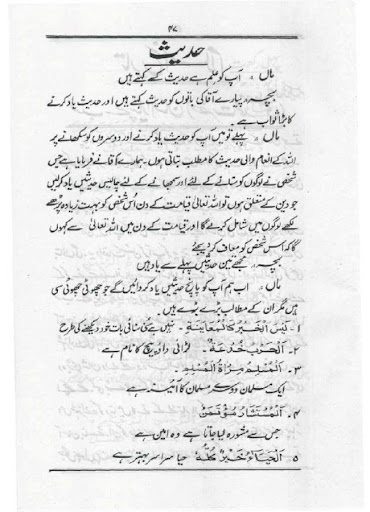 ۴۷
حدیث
ماں ، آپ کو علم ہے حدیث کسے کہتے ہیں
بچہ ، پیارے آقا کی باتوں کو حدیث کہتے ہیں اور حدیث یاد کرنے
کا بڑا ثواب ہے ۔
ماں ، پہلے تو میں آپ کو حدیث یاد کرنے اور دوسروں کو سکھانے پر
اللہ کے انعام والی حدیث کا مطلب بتاتی ہوں ۔ ہمارے آقا نے فرمایا ہے جس
شخص نے لوگوں کو سنانے کے لئے اور سمجھانے کے لئے چالیس حدیثیں یاد کر لیں
جو دین کے متعلق ہوں تو اللہ تعالیٰ قیامت کے دن اُس شخص کو بہت زیادہ پڑھے
لکھے لوگوں میں شامل کرے گا اور قیامت کے دن میں اللہ تعالیٰ سے کہوں
گا کہ اس شخص کو معاف کر دیجئے
بچہ ، مجھے تین حدیثیں پہلے سے یاد ہیں
ماں ، اب ہم آپ کو پانچ حدیثیں یاد کروائیں گے جو چھوٹی چھوٹی سی
ہیں مگر ان کے مطالب بڑے بڑے ہیں ۔
۱ ۔ لَیْسَ الْخَبَرُ کَالْمُعَایَنَۃِ ۔ نہیں ہے سنی سنائی بات خود دیکھنے کی طرح
۲ ۔ اَلْحَرْبُ خُدْعَۃٌ ۔ لڑائی داؤ پیچ کا نام ہے
۳ ۔ اَلْمُسْلِمُ مِرْاٰۃُ الْمُسْلِمِ ۔
ایک مسلمان دوسرے مسلمان کا آئینہ ہے
۴ ۔ اَلْمُسْتَشَارُ مُؤْتَمَنٌ
جس سے مشورہ لیا جاتا ہے وہ امین ہے
۵ اَلْحَیَاءُ خَیْرٌ کُلُّہٗ حیا سراسر بہتر ہے